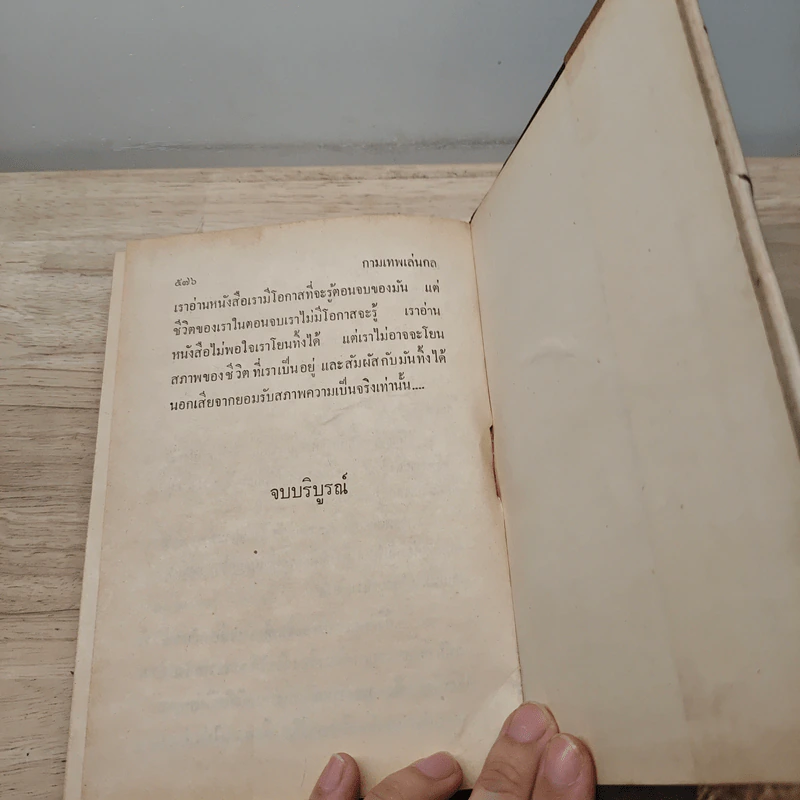 กามเทพเล่นกล
๕๗๖
เราอ่านหนังสือเรามีโอกาสที่จะรู้ตอนจบของมัน แต่
ชีวิตของเราในตอนจบเราไม่มีโอกาสจะรู้ เราอ่าน
หนังสือไม่พอใจเราโยนทิ้งได้ แต่เราไม่อาจจะโยน
สภาพของชีวิตที่เราเป็นอยู่ และสัมผัสกับมันทิ้งได้
นอกเสียจากยอมรับสภาพความเป็นจริงเท่านั้น....
จบบริบูรณ์